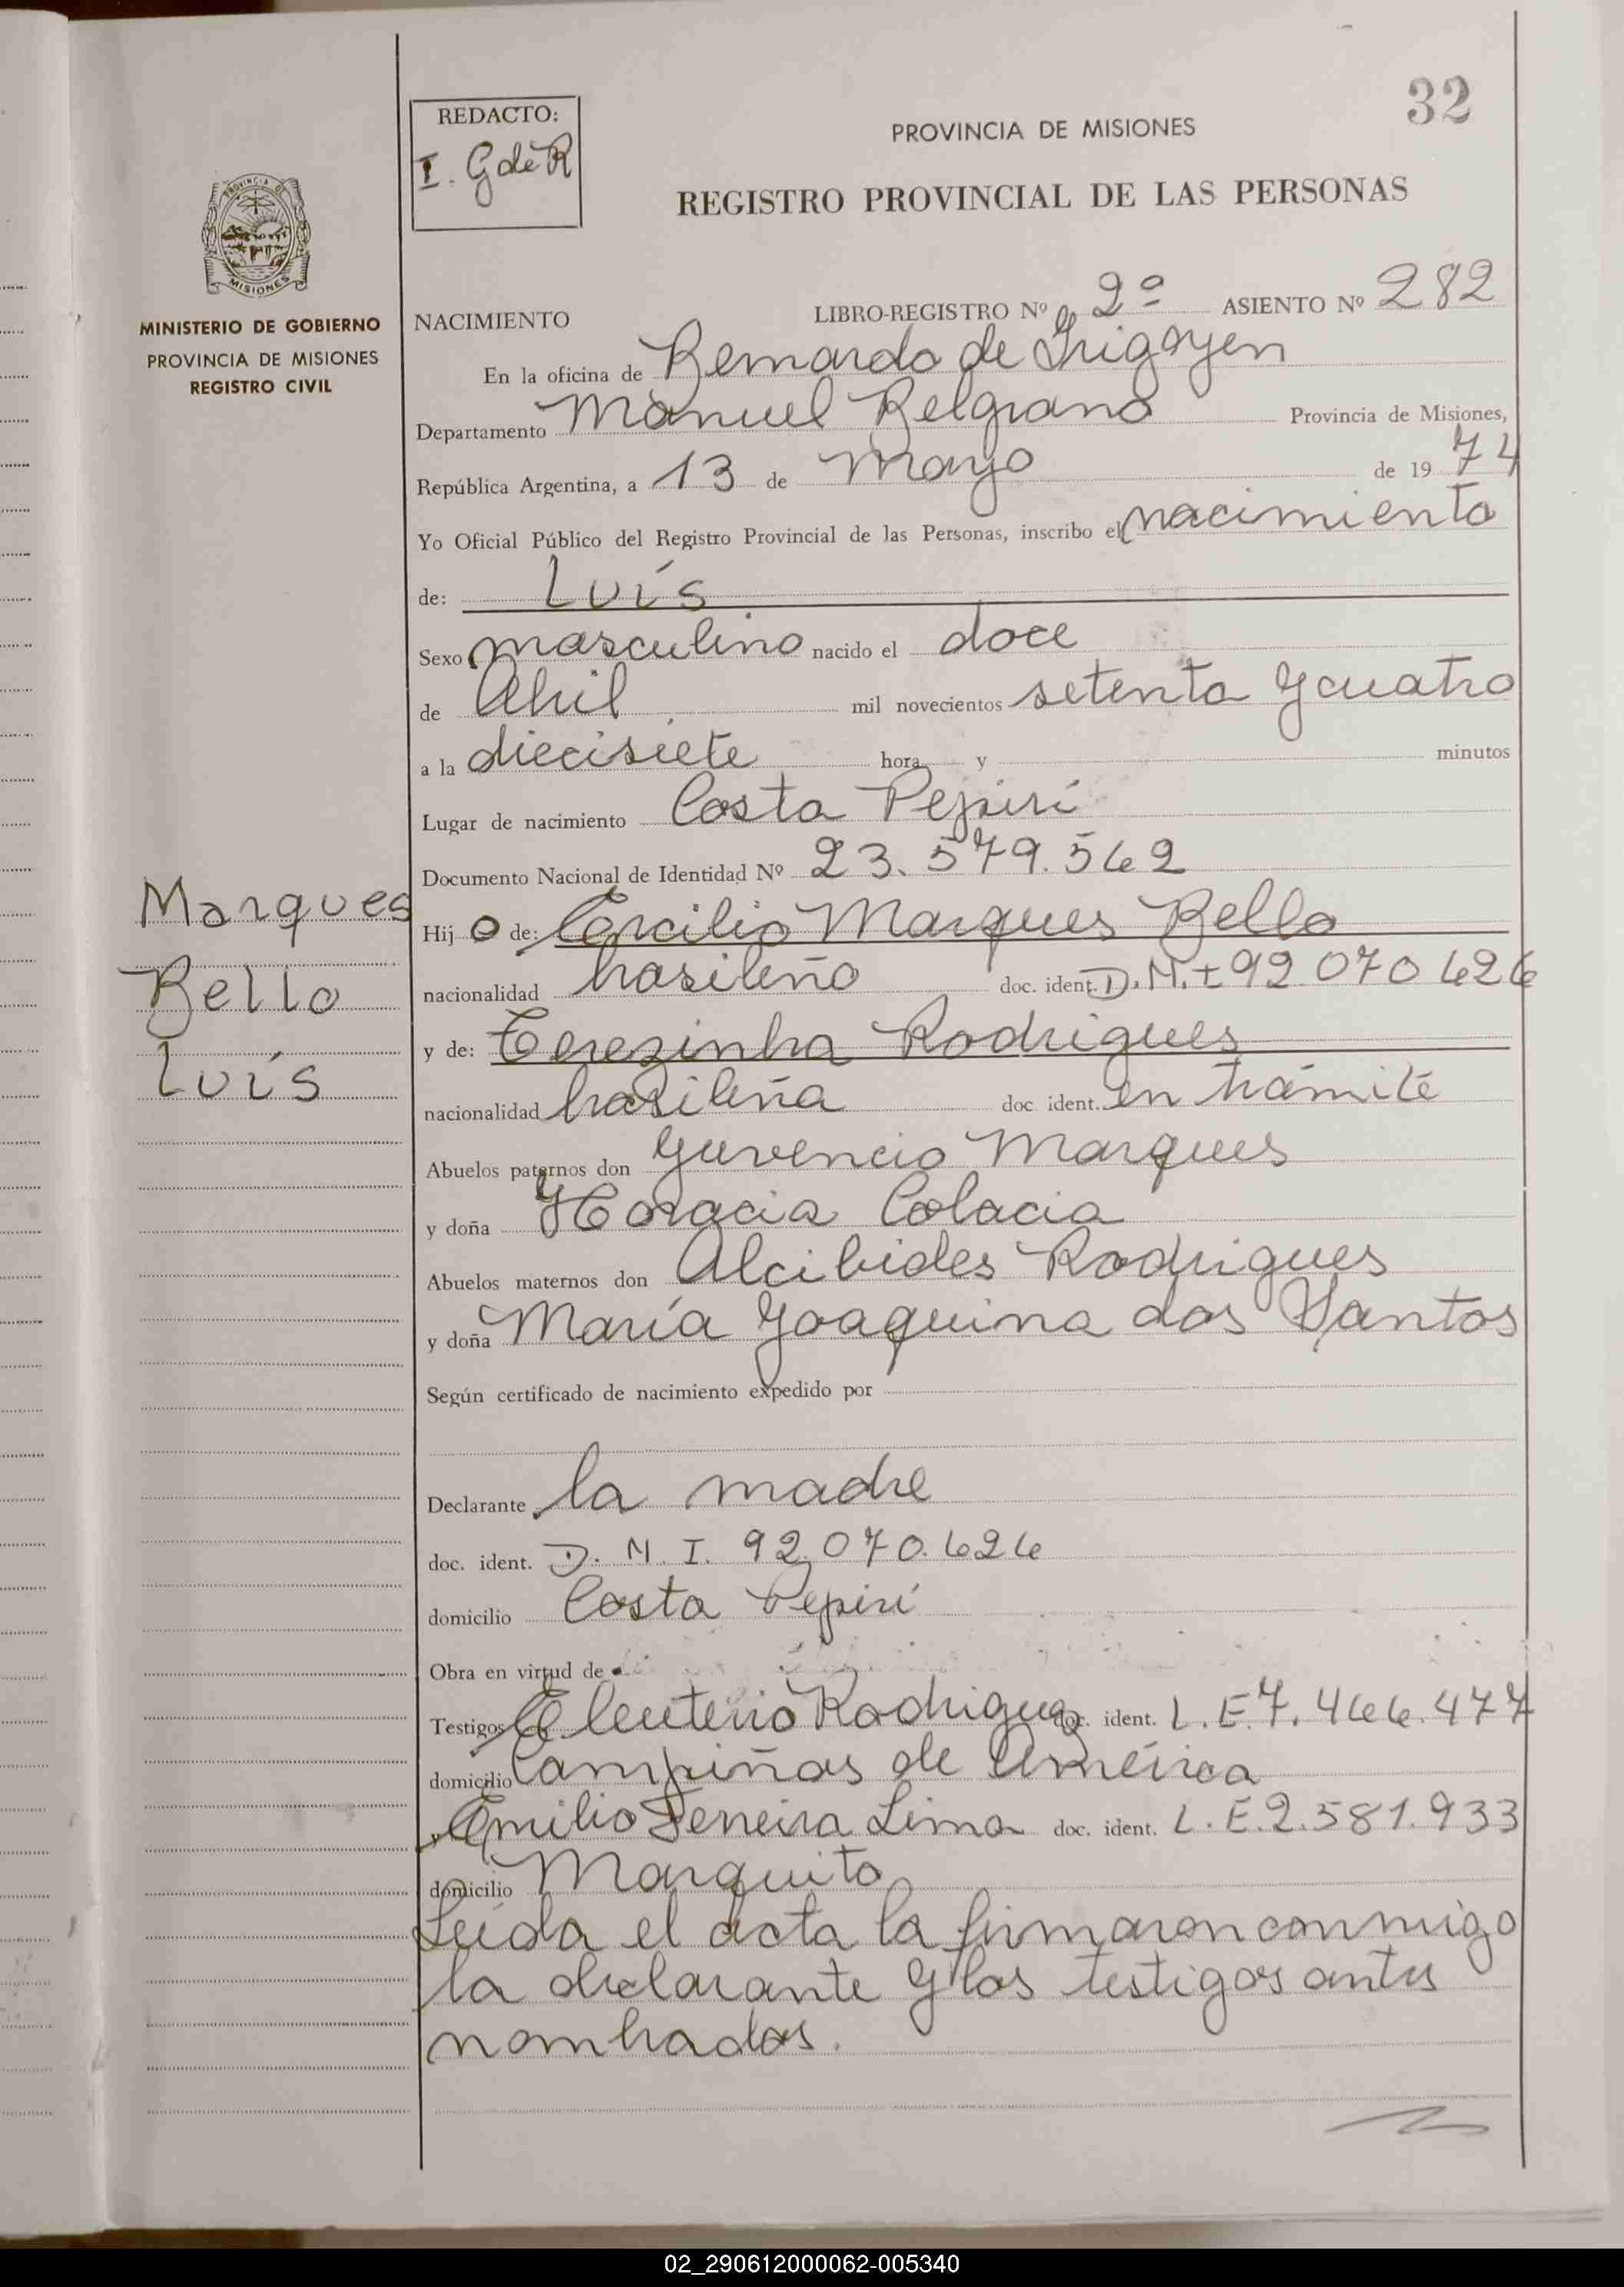 32
REDACTO:
I. G de R
PROVINCIA DE MISIONES
REGISTRO PROVINCIAL DE LAS PERSONAS
PROVINCIA DE
MISIONES
MINISTERIO DE GOBIERNO
PROVINCIA DE MISIONES
REGISTRO CIVIL
NACIMIENTO LIBRO-REGISTRO Nº 2º ASIENTO Nº 282
En la oficina de Bernardo de Irigoyen
Departamento Manuel Belgrano Provincia de Misiones,
República Argentina, a 13 de Mayo de 1974
Yo Oficial Público del Registro Provincial de las Personas, inscribo el nacimiento
de: Luís
Sexo masculino nacido el doce
de Abril mil novecientos setenta y cuatro
a la diecisiete hora y minutos
Lugar de nacimiento Costa Pepirí
Documento Nacional de Identidad Nº 23.579.562
Marques
Hijo de: Marques Bello
nacionalidad brasileño doc. ident. D.N.I 92 070 626
Bello
y de: Terezinha Rodrigues
Luís
nacionalidad brasileña doc ident. en trámite
Abuelos paternos don Yuvencio Marques
y doña Horacia Colacia
Abuelos maternos don Alcibides Rodrigues
y doña María Yoaquina dos Santos
Según certificado de nacimiento expedido por
Declarante la madre
doc. ident. D. N. I. 92.070.626
domicilio Costa Pepirí
Obra en virtud de
Testigos Eleuterio Rodrigues doc. ident. L.E.7.466.477
domicilio Campiñas de América
y Emilio Ferreira Lima doc. ident. L.E.2.581.933
domicilio Marquito
Leída el acta la firmaron conmigo
la declarante y los testigos antes
nombrados.
02_290612000062-005340